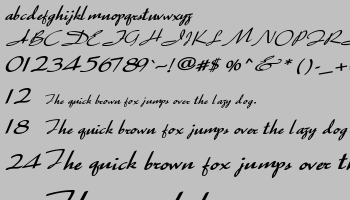 abcdefghijklmnopqrstuvwxyz
ABCDEFGHIJKLMNOPQR
0123456789`~!@#$%^&*()-_+
12 The quick brown fox jumps over the lazy dog.
18 The quick brown fox jumps over the lazy dog
24 The quick brown fox jumps over